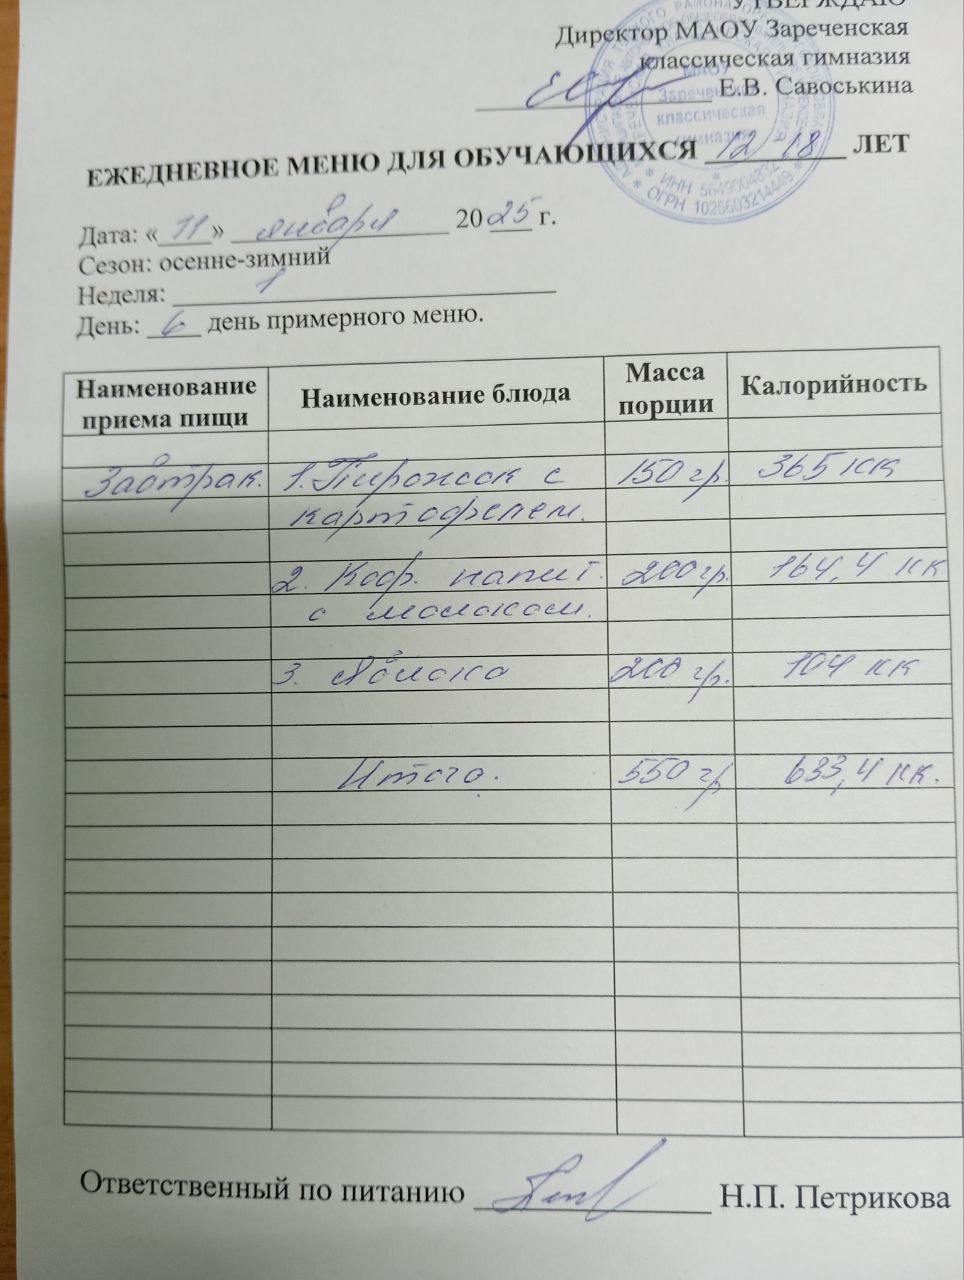 УТВЕРЖДАЮ
Директор МАОУ Зареченская
классическая гимназия
Е.В. Савоськина
МАОУ
Зареченская
классическая
гимназия
* ИНН 5649004832 *
* ОГРН 1025603214449 *
ЕЖЕДНЕВНОЕ МЕНЮ ДЛЯ ОБУЧАЮЩИХСЯ 12 18 ЛЕТ
Дата: «11» января 2025 г.
Сезон: осенне-зимний
Неделя: 1
День: 6 день примерного меню.
Наименование приема пищи Наименование блюда Масса порции Калорийность
Завтрак. 1. Пирожок с 150 гр. 365 кк
картофелем.
2. Коф. напит. 200 гр. 164,4 кк
с молоком.
3. Яблоко 200 гр. 104 кк
Итого. 550 гр 633,4 кк.
Ответственный по питанию Н.П. Петрикова